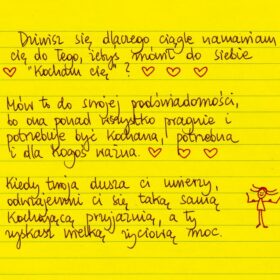 Dziwisz się dlaczego ciągle namawiam
cię do tego, żebyś mówił do siebie
"Kocham cię"?
Mów to do swojej podświadomości,
bo ona ponad wszystko pragnie i
potrzebuje być kochana, potrzebna
i dla kogoś ważna.
Kiedy twoja dusza ci uwierzy,
odwzajemni ci się taką samą
kochającą przyjaźnią, a ty
zyskasz wielką życiową moc.